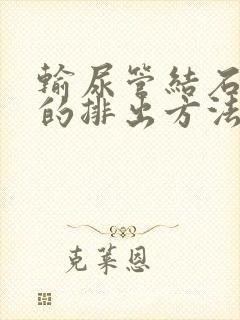 輸尿管結石
的排出方法
克萊恩